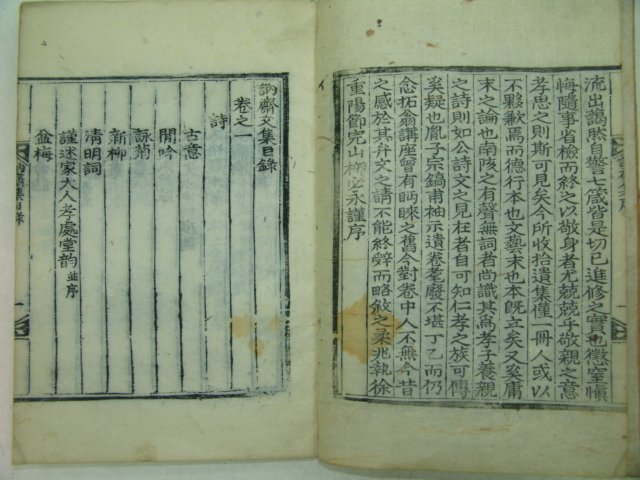 流出謁然自警七箴皆是切己進修之實也懲窒愼
悔隨事省檢而終之以敬身者尤兢兢乎敬親之意
孝思之則斯可見矣今所收拾遺集僅一冊人或以
不夥歉焉而德行本也文藝末也本旣立矣又奚庸
末之論也南陔之有聲無詞者尚識其爲孝子養親
之詩則如公詩文之見在者自可知仁孝之族可傳
矣疑也胤子宗鎬甫袖示遺卷耄廢不堪丁乙而仍
念拓翁講座曾有眄睞之舊今對卷中人不無今昔
之感於其弁文之請不能終辤而略敘之柔兆執徐
重陽節完山柳必永謹序
訥齋文集目錄
卷之一
詩
古意
閒吟
詠菊
新柳
淸明詞
謹述家大人孝處堂韵 並序
盆梅
訥齋集目錄